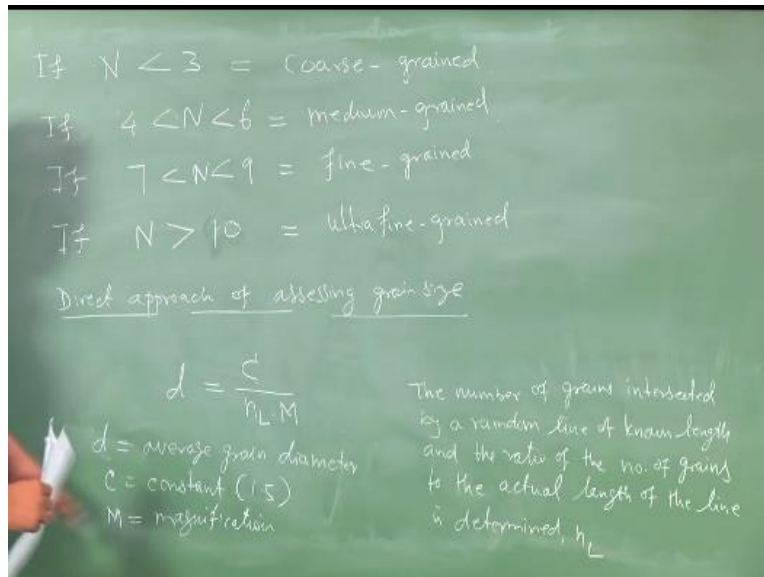 If N < 3 = coarse-grained
If 4 < N < 6 = medium-grained
If 7 < N < 9 = fine-grained
If N > 10 = ultrafine-grained
Direct approach of assessing grain size
d = C / n_L . M
d = average grain diameter
C = constant (1.5)
M = magnification
The number of grains intersected
by a random line of known length
and the ratio of the no. of grains
to the actual length of the line
is determined, n_L